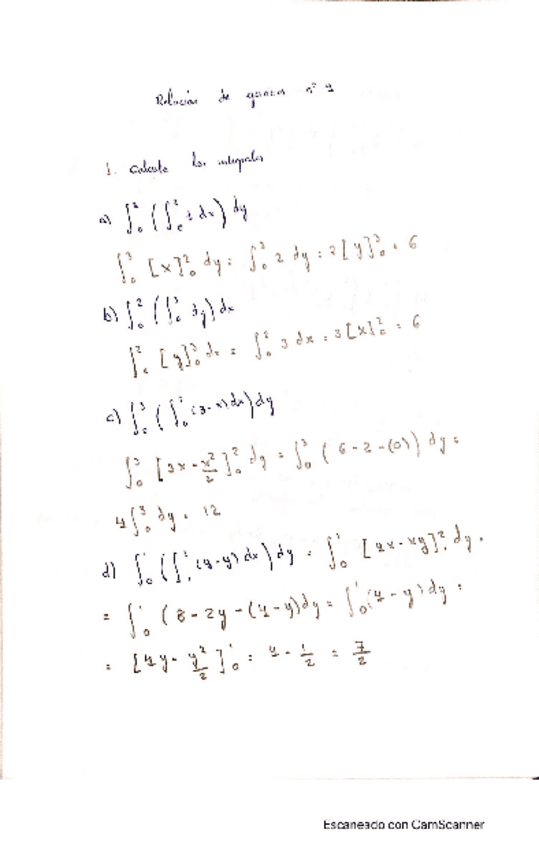 Relación de ejercicios nº 4
1. Calcula las integrales
a) ∫₀³ (∫₀² 1 dx) dy
∫₀³ [x]₀² dy = ∫₀³ 2 dy = 2 [y]₀³ = 6
b) ∫₀² (∫₀³ dy) dx
∫₀² [y]₀³ dx = ∫₀² 3 dx = 3 [x]₀² = 6
c) ∫₀³ (∫₀² (3-x) dx) dy
∫₀³ [3x - x²/2]₀² dy = ∫₀³ (6 - 2 - (0)) dy =
4 ∫₀³ dy = 12
d) ∫₀¹ (∫₁² (4-y) dx) dy = ∫₀¹ [4x - xy]₁² dy =
= ∫₀¹ (8 - 2y - (4-y) dy = ∫₀¹ (4 - y) dy =
= [4y - y²/2]₀¹ = 4 - 1/2 = 7/2
Escaneado con CamScanner